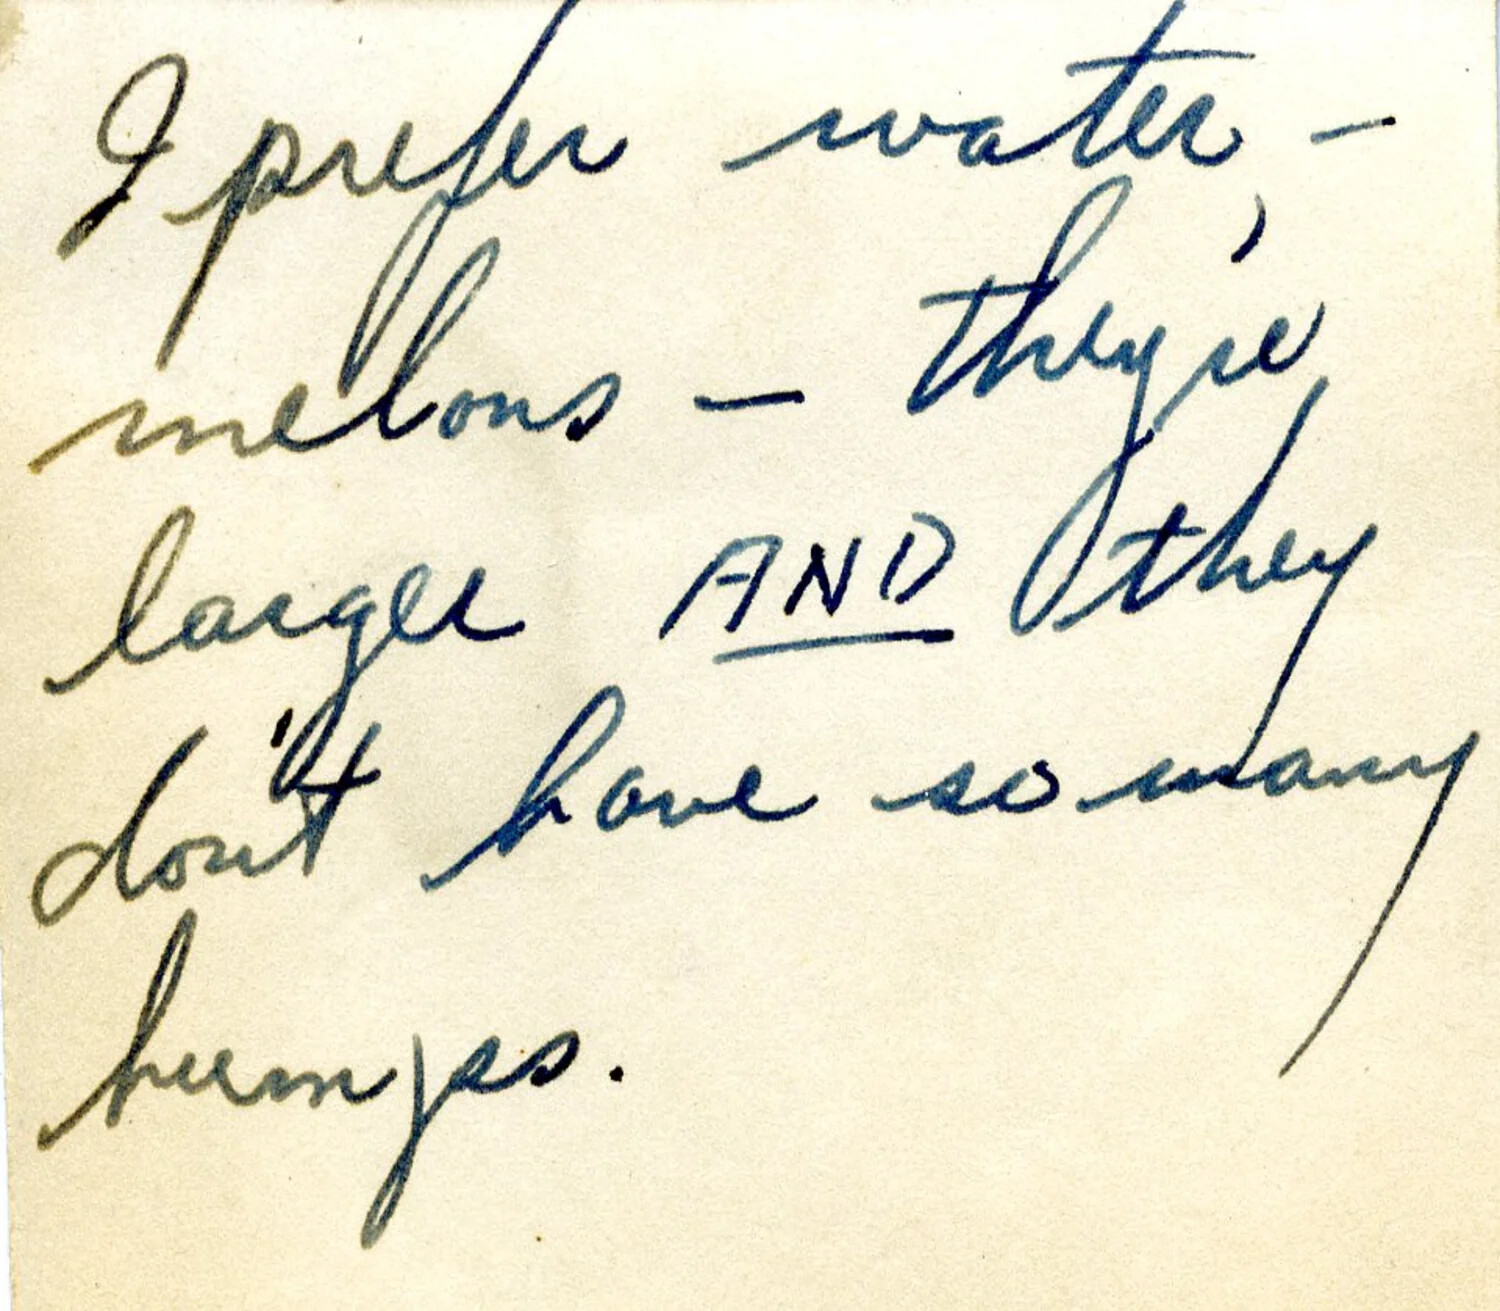 I prefer water -
melons — they're
larger AND they
don't have so many
bumps.